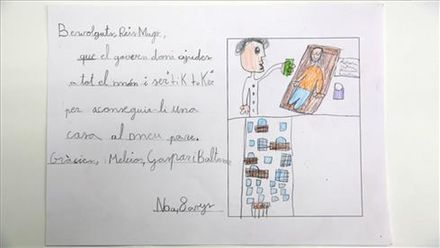 Benvolguts Reis Mags,
que el govern doni ajudes
a tot el món i ser TiKToKer
per aconseguir li una
casa al meu pare.
Gràcies, Melcior, Gaspar i Baltasar
8 anys